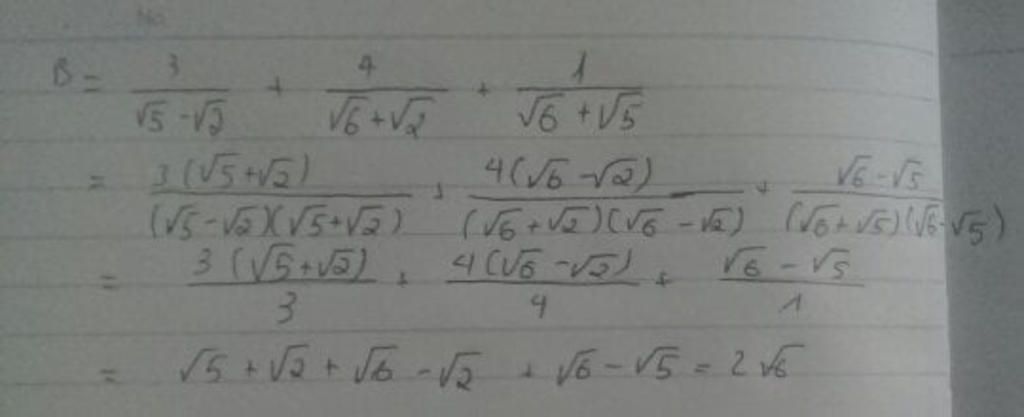 No
B = 3/(√5 - √2) + 4/(√6 + √2) + 1/(√6 + √5)
= 3(√5 + √2)/((√5 - √2)(√5 + √2)) + 4(√6 - √2)/((√6 + √2)(√6 - √2)) + (√6 - √5)/((√6 + √5)(√6 - √5))
= 3(√5 + √2)/3 + 4(√6 - √2)/4 + (√6 - √5)/1
= √5 + √2 + √6 - √2 + √6 - √5 = 2√6